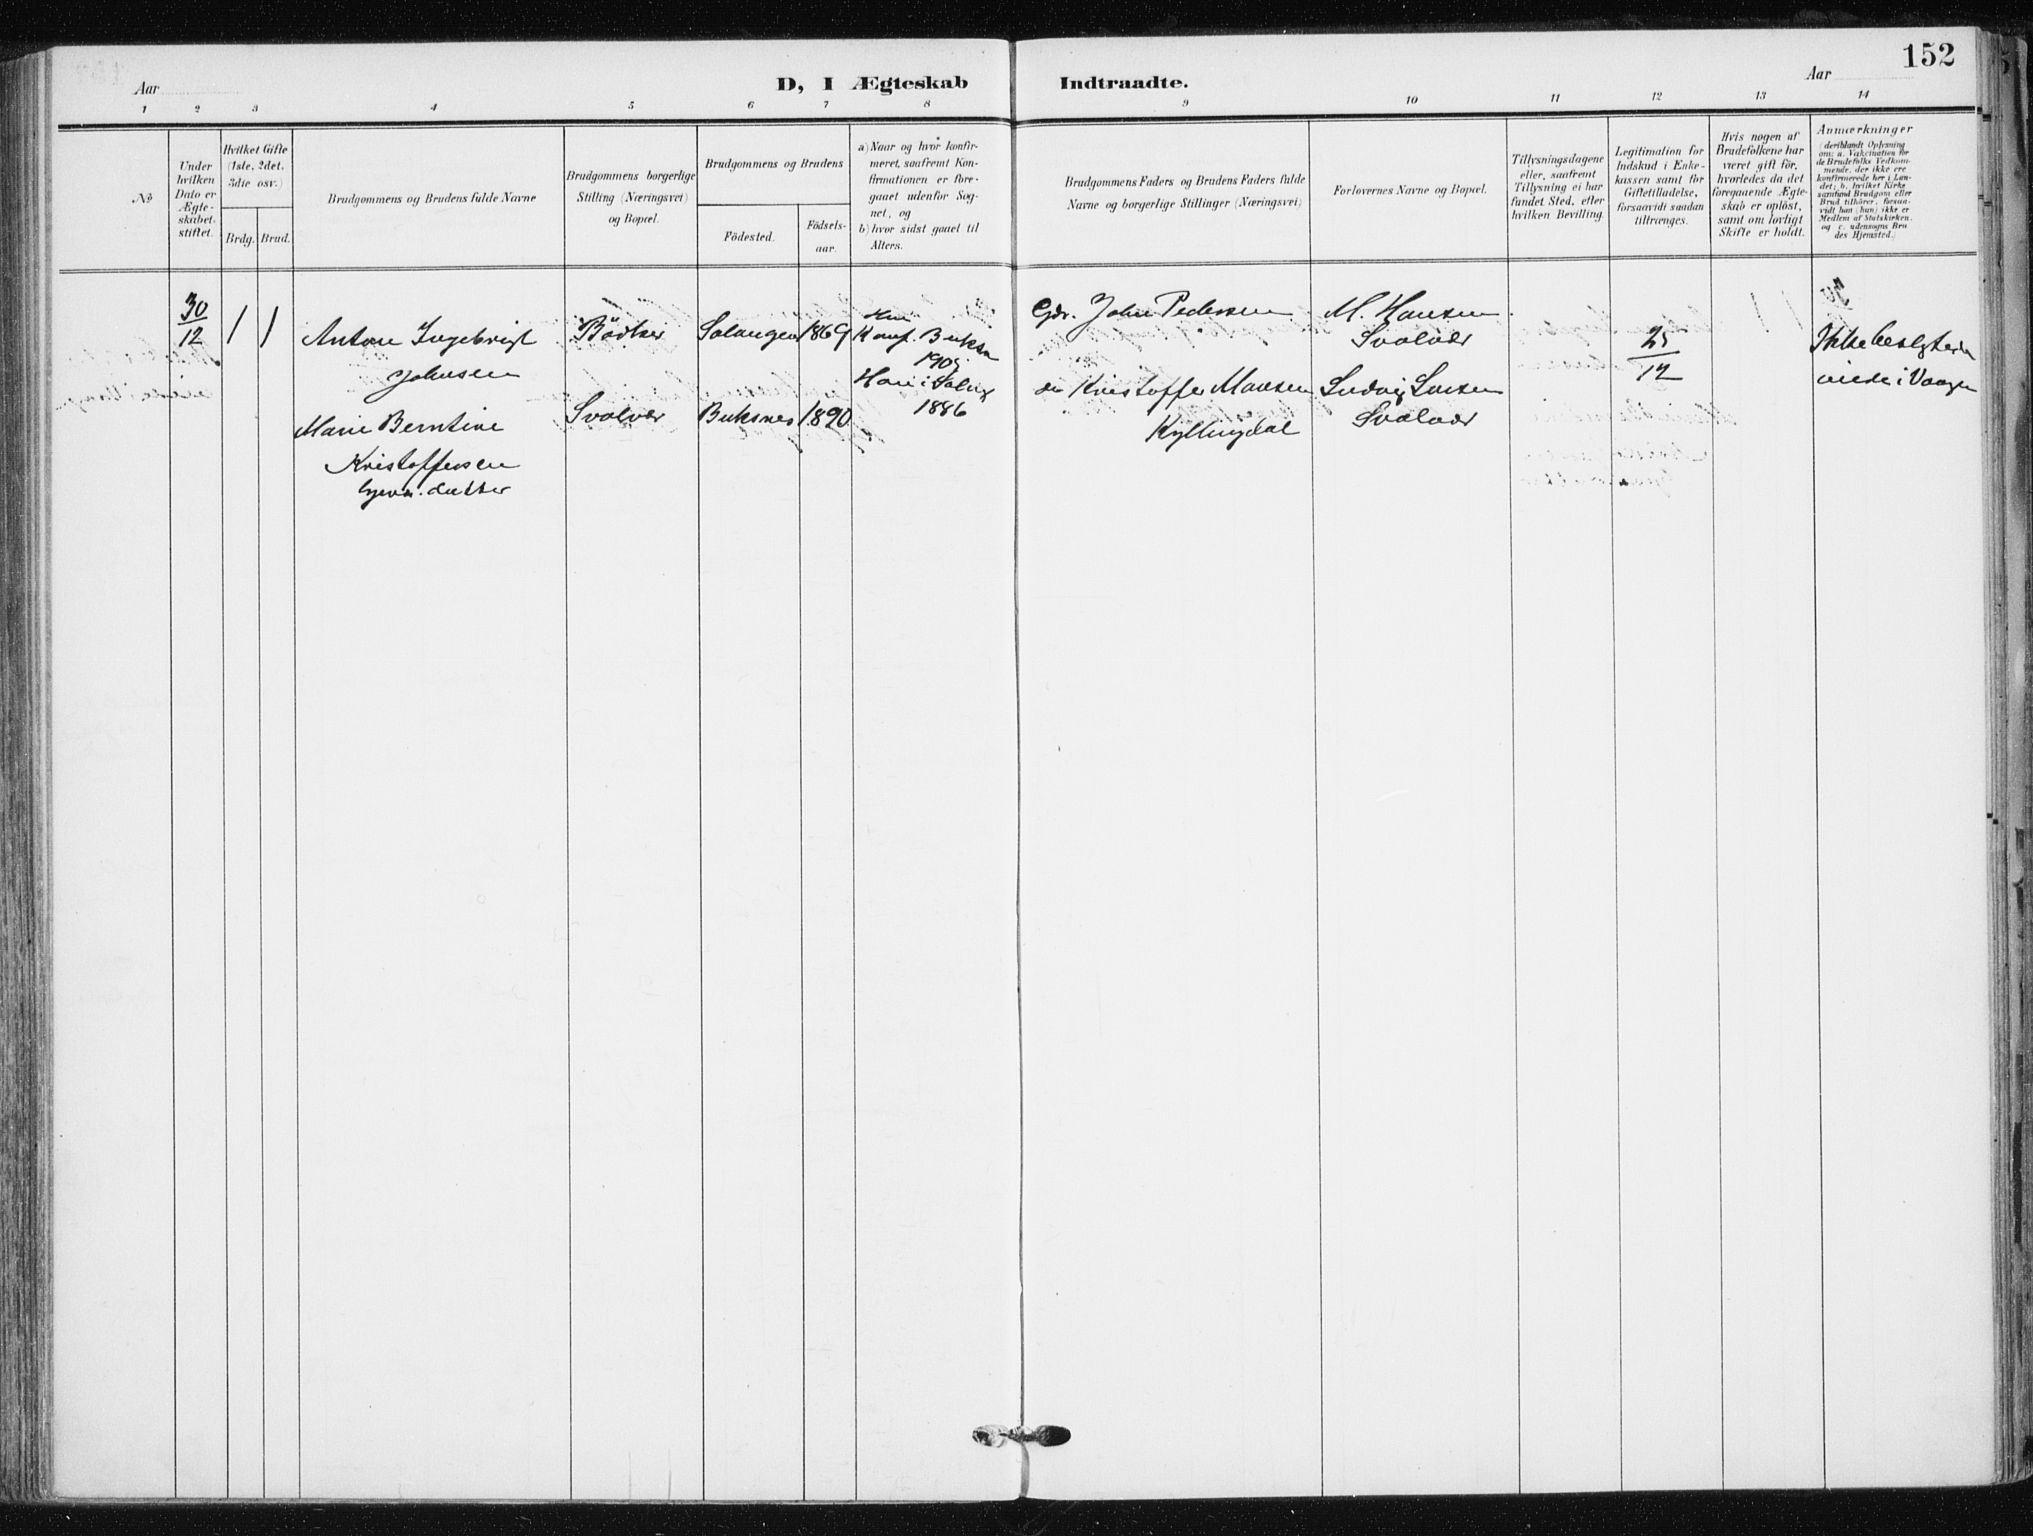 152
Aar
D, I Ægteskab Indtraadte.
Aar
1 2 3 4 5 6 7 8 9 10 11 12 13 14
№
Under
hvilken
Dato er
Ægte-
skabet
stiftet.
Hvilket Gifte
(1ste, 2det,
3die osv.)
Brdg. Brud.
Brudgommens og Brudens fulde Navne
Brudgommens borgerlige
Stilling (Næringsvei)
og Bopæl.
Brudgommens og Brudens
Födested.
Födsels-
aar.
a) Naar og hvor konfir-
meret, saafremt Kon-
firmationen er fore-
gaaet udenfor Sog-
net, og
b) hvor sidst gaaet til
Alters.
Brudgommens Faders og Brudens Faders fulde
Navne og borgerlige Stillinger (Næringsvei)
Forlovernes Navne og Bopæl.
Tillysningsdagene
eller, saafremt
Tillysning ei har
fundet Sted, efter
hvilken Bevilling.
Legitimation for
Indskud i Enke-
kassen samt for
Giftetilladelse,
forsaavidt saadan
tiltrænges.
Hvis nogen af
Brudefolkene har
været gift för,
hvorledes da det
foregaaende Ægte-
skab er oplöst,
samt om lovligt
Skifte er holdt.
Anmærkninger
(deriblandt Oplysning
om: a. Vakcination for
de Brudefolks Vedkom-
mende, der ikke ere
konfirmerede her i Lan-
det; b. hvilket Kirke
samfund Brudgom eller
Brud tilhörer, forsaa-
vidt han (hun) ikke er
Medlem af Statskirken.
og c. udensogns Bru
des Hjemsted.)
30
12
1 1
Antone Ingebrigt
Johnsen
Bödker
Salangen 1869
Hun
Konf. Buksn
1905
Han i Salng
1886
Gdr. John Pedersen
M. Hansen
Svolvær
25
12
Ikke beslgtede
viede i Vaagen
Marie Berntine
Kristoffersen
hjemv. datter
Svolvær
Buksnes 1890
do Kristoffer Monsen
Kyllingdal
Ludvig Larsen
Svolvær